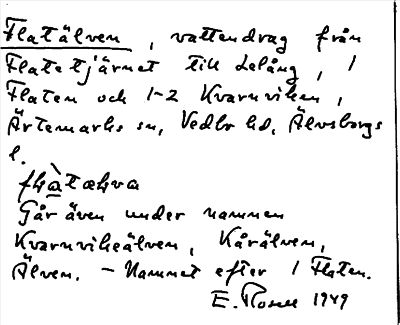 Flatälven, vattendrag från
Flatetjärnet till Lelång, 1
Flaten och 1-2 Kvarnviken,
Ärtemarks sn, Vedbo hd, Älvsborgs
l.
Går även under namnen
Kvarnvikeälven, Kårälven,
Älven. – Namnet efter 1 Flaten.
E. Rosell 1949